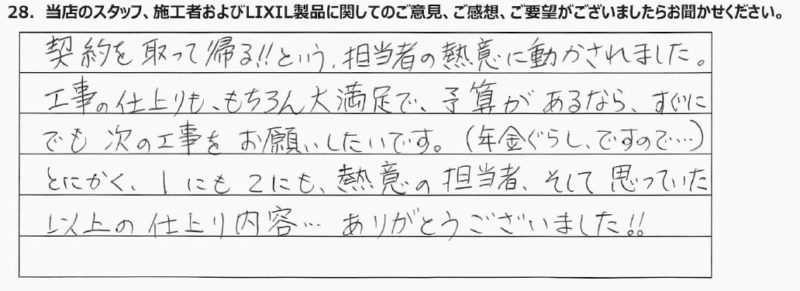 28. 当店のスタッフ、施工者およびLIXIL製品に関してのご意見、ご感想、ご要望がございましたらお聞かせください。
契約を取って帰る!!という、担当者の熱意に動かされました。
工事の仕上りも、もちろん大満足で、予算があるなら、すぐに
でも次の工事をお願いしたいです。(年金ぐらし、ですので…)
とにかく、1にも2にも、熱意の担当者、そして思っていた
以上の仕上り内容… ありがとうございました!!